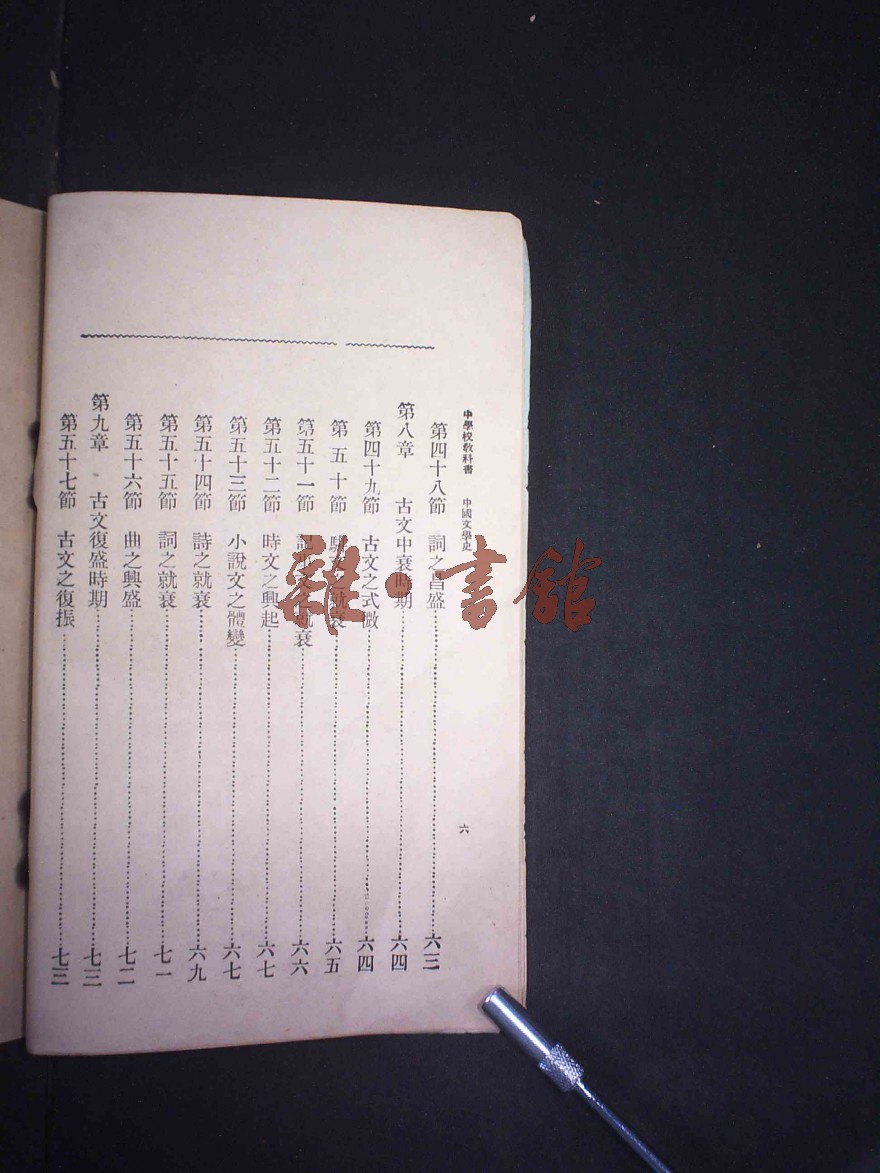 中學校教科書 中國文學史 六
第四十八節 詞之昌盛 六三
第八章 古文中衰時期 六四
第四十九節 古文之式微 六四
第五十節 駢文之就衰 六五
第五十一節 記事文之就衰 六六
第五十二節 時文之興起 六七
第五十三節 小說文之體變 六七
第五十四節 詩之就衰 六九
第五十五節 詞之就衰 七一
第五十六節 曲之興盛 七二
第九章 古文復盛時期 七三
第五十七節 古文之復振 七三
雜·書館